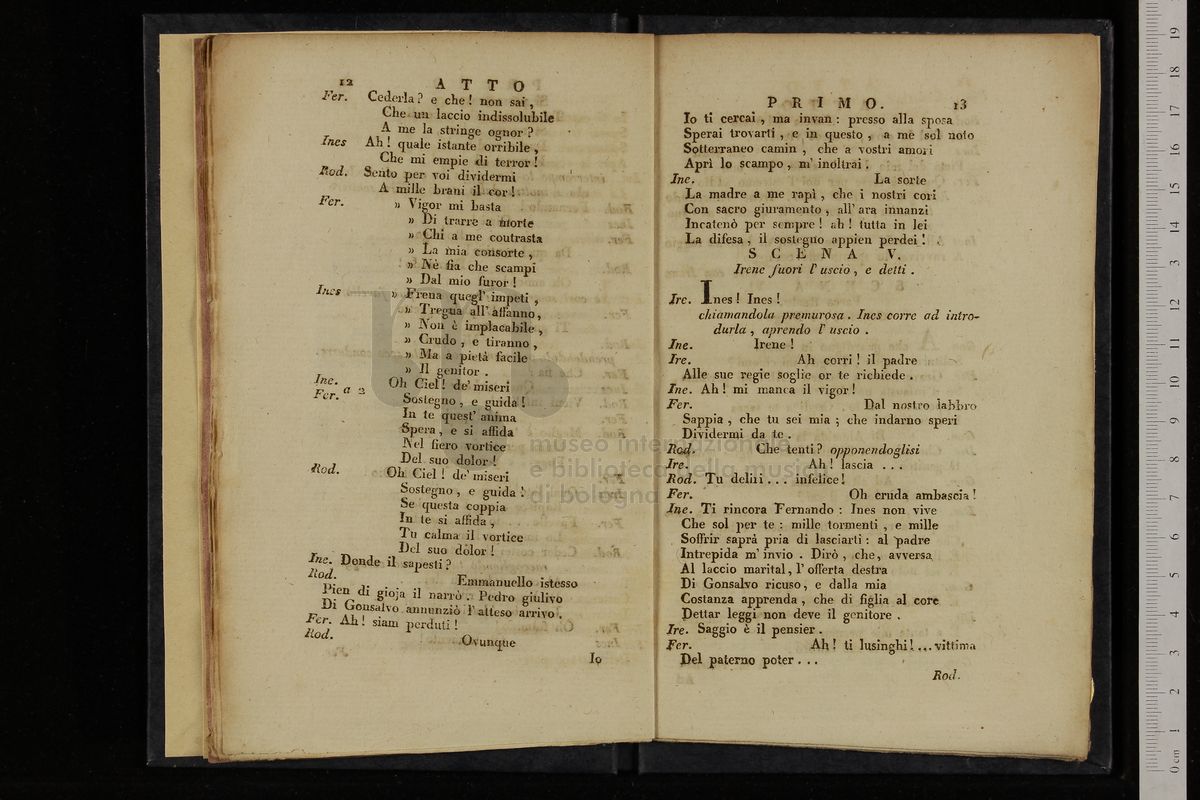 12 ATTO
Fer. Cederla? e che! non sai,
Che un laccio indissolubile
A me la stringe ognor?
Ines Ah! quale istante orribile,
Che mi empie di terror!
Rod. Sento per voi dividermi
A mille brani il cor!
Fer. » Vigor mi basta
» Di trarre a morte
» Chi a me coutrasta
» La mia consorte,
» Nè fia che scampi
» Dal mio furor!
Ines » Frena quegl' impeti,
» Tregua all' affanno,
» Non è implacabile,
» Crudo, e tiranno,
» Ma a pietà facile
» Il genitor.
Ine. Oh Ciel! de' miseri
Fer. a 2 Sostegno, e guida!
In te quest' anima
Spera, e si affida
Nel fiero vortice
Del suo dolor!
Rod. Oh Ciel! de' miseri
Sostegno, e guida!
Se questa coppia
In te si affida,
Tu calma il vortice
Del suo dolor!
Ine. Donde il sapesti?
Rod. Emmanuello istesso
Pien di gioja il narrò. Pedro giulivo
Di Gonsalvo annunziò l' atteso arrivo.
Fer. Ah! siam perduti!
Rod. Ovunque
Io
PRIMO. 13
Io ti cercai, ma invan: presso alla sposa
Sperai trovarti, e in questo, a me sol noto
Sotterraneo camin, che a vostri amori
Aprì lo scampo, m' inoltrai.
Ine. La sorte
La madre a me rapì, che i nostri cori
Con sacro giuramento, all' ara innanzi
Incatenò per sempre! ah! tutta in lei
La difesa, il sostegno appien perdei!
SCENA V.
Irene fuori l' uscio, e detti.
Ire. Ines! Ines!
chiamandola premurosa. Ines corre ad intro-
durla, aprendo l' uscio.
Ine. Irene!
Ire. Ah corri! il padre
Alle sue regie soglie or te richiede.
Ine. Ah! mi manca il vigor!
Fer. Dal nostro labbro
Sappia, che tu sei mia; che indarno speri
Dividermi da te.
Rod. Che tenti? opponendoglisi
Ire. Ah! lascia ...
Rod. Tu deliri... infelice!
Fer. Oh cruda ambascia!
Ine. Ti rincora Fernando: Ines non vive
Che sol per te: mille tormenti, e mille
Soffrir saprà pria di lasciarti: al padre
Intrepida m' invio. Dirò, che, avversa
Al laccio marital, l' offerta destra
Di Gonsalvo ricuso, e dalla mia
Costanza apprenda, che di figlia al core
Dettar leggi non deve il genitore.
Ire. Saggio è il pensier.
Fer. Ah! ti lusinghi!... vittima
Del paterno poter...
Rod.
museo internazionale
e biblioteca della musica
di bologna
0 cm 1 2 3 4 5 6 7 8 9 10 11 12 13 14 15 16 17 18 19